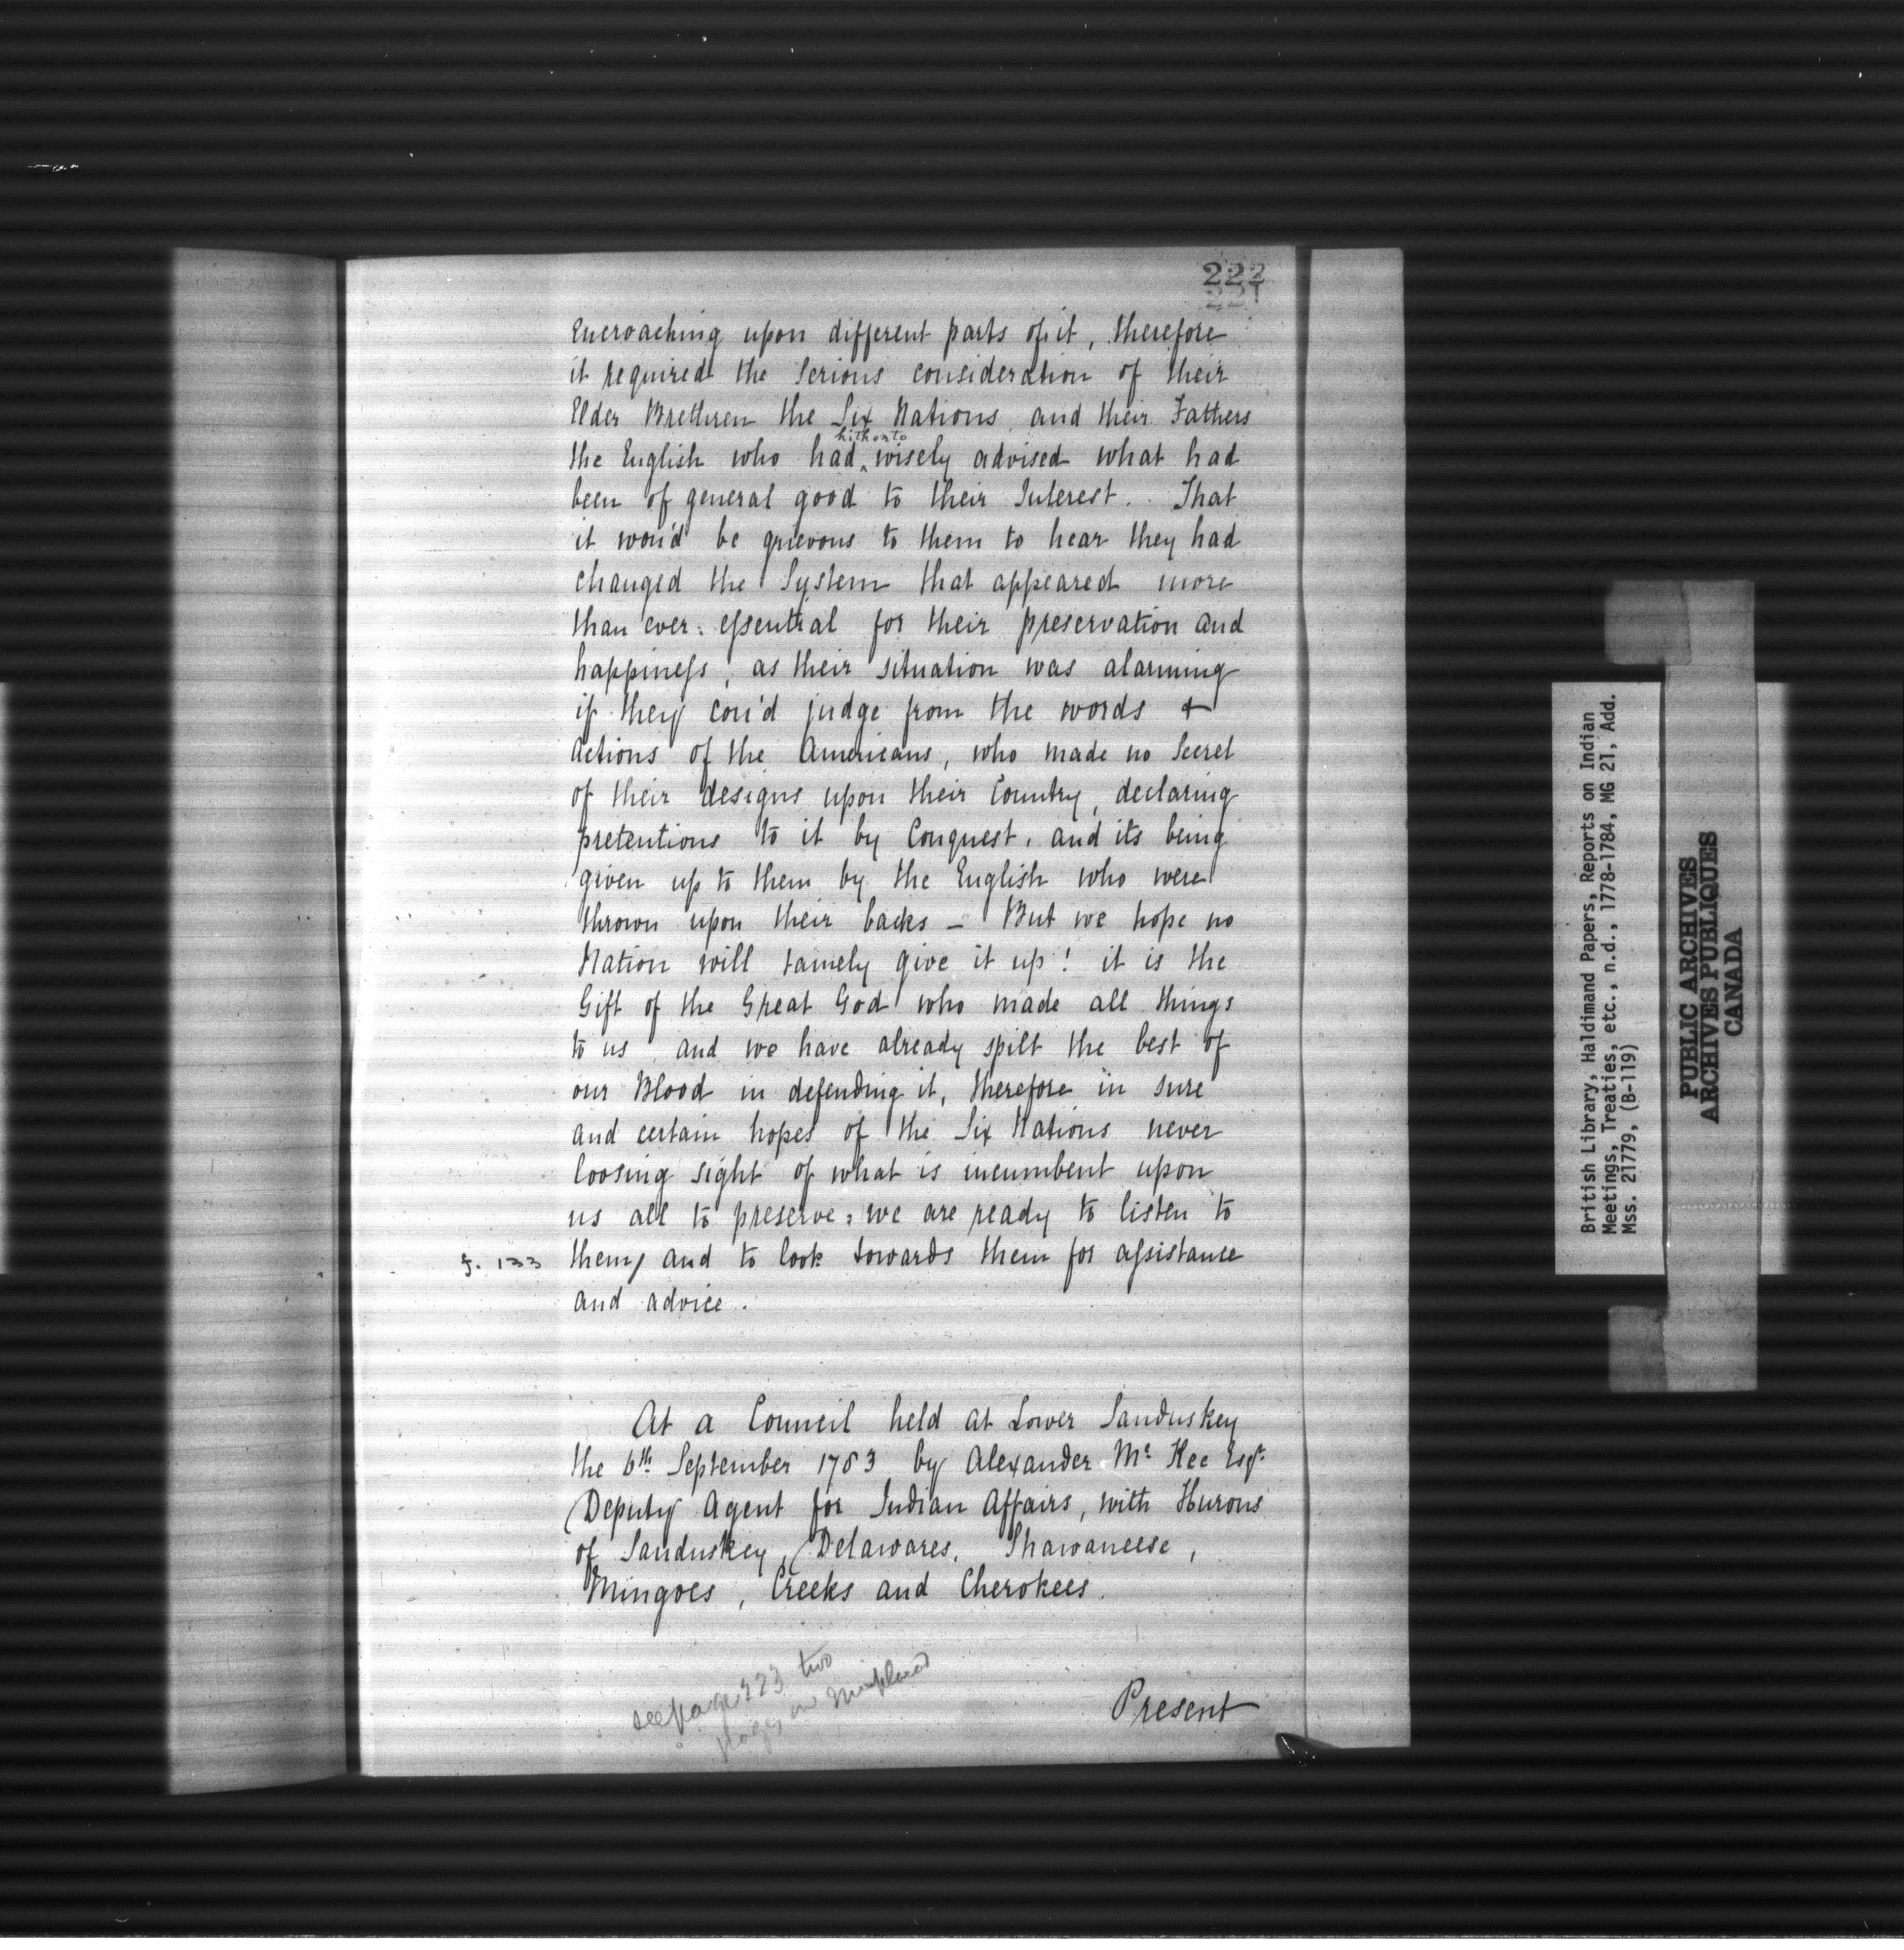 222
221
Encroaching upon different parts of it, therefore
it required the Serious consideration of their
Elder Brethren the Six Nations, and their Fathers
the English who had ^hitherto wisely advised what had
been of general good to their Interest. That
it wou'd be grievous to them to hear they had
changed the System that appeared more
than ever essential for their preservation and
happiness, as their situation was alarming
if they cou'd judge from the words &
actions of the Americans, who made no Secret
of their designs upon their Country, declaring
pretentions to it by Conquest, and its being
given up to them by the English who were
thrown upon their backs — But we hope no
Nation will tamely give it up! it is the
Gift of the Great God who made all things
to us, and we have already spilt the best of
our Blood in defending it, therefore in sure
and certain hopes of the Six Nations never
loosing sight of what is incumbent upon
us all to preserve, we are ready to listen to
f. 133 them/ and to look towards them for assistance
and advice.
At a Council held at Lower Sanduskey
the 6th September 1783 by Alexander Mc Kee Esqr.
Deputy Agent for Indian Affairs, with Hurons
of Sanduskey, Delawares, Shawaneese,
Mingoes, Creeks and Cherokees.
see page 223 two
pages misplaced
Present
British Library, Haldimand Papers, Reports on Indian
Meetings, Treaties, etc., n.d., 1778-1784, MG 21, Add.
Mss. 21779, (B-119)
PUBLIC ARCHIVES
ARCHIVES PUBLIQUES
CANADA